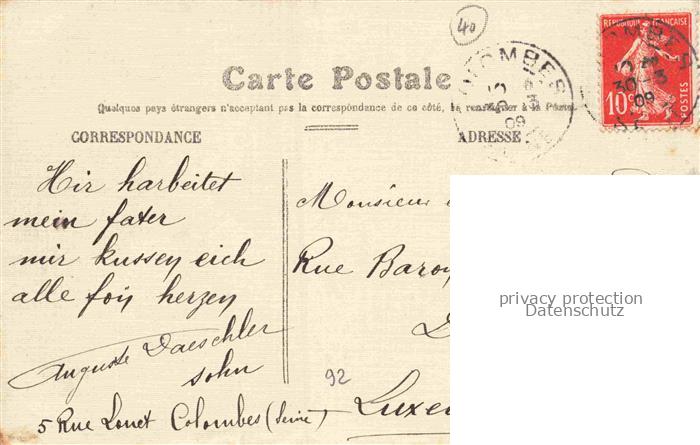 40
RÉPUBLIQUE FRANÇAISE
10
POSTES
COLOMBES
30 - 3
09
Carte Postale
Quelques pays étrangers n'acceptant pas la correspondance de ce côté, se renseigner à la Poste.
CORRESPONDANCE
ADRESSE
Hir harbeitet
mein fater
mir kussen eich
alle fon herzen
Auguste Daeschler
sohn
5 Rue Colombes (Seine)
Monsieur
Rue Baron
Luxe
92
privacy protection
Datenschutz